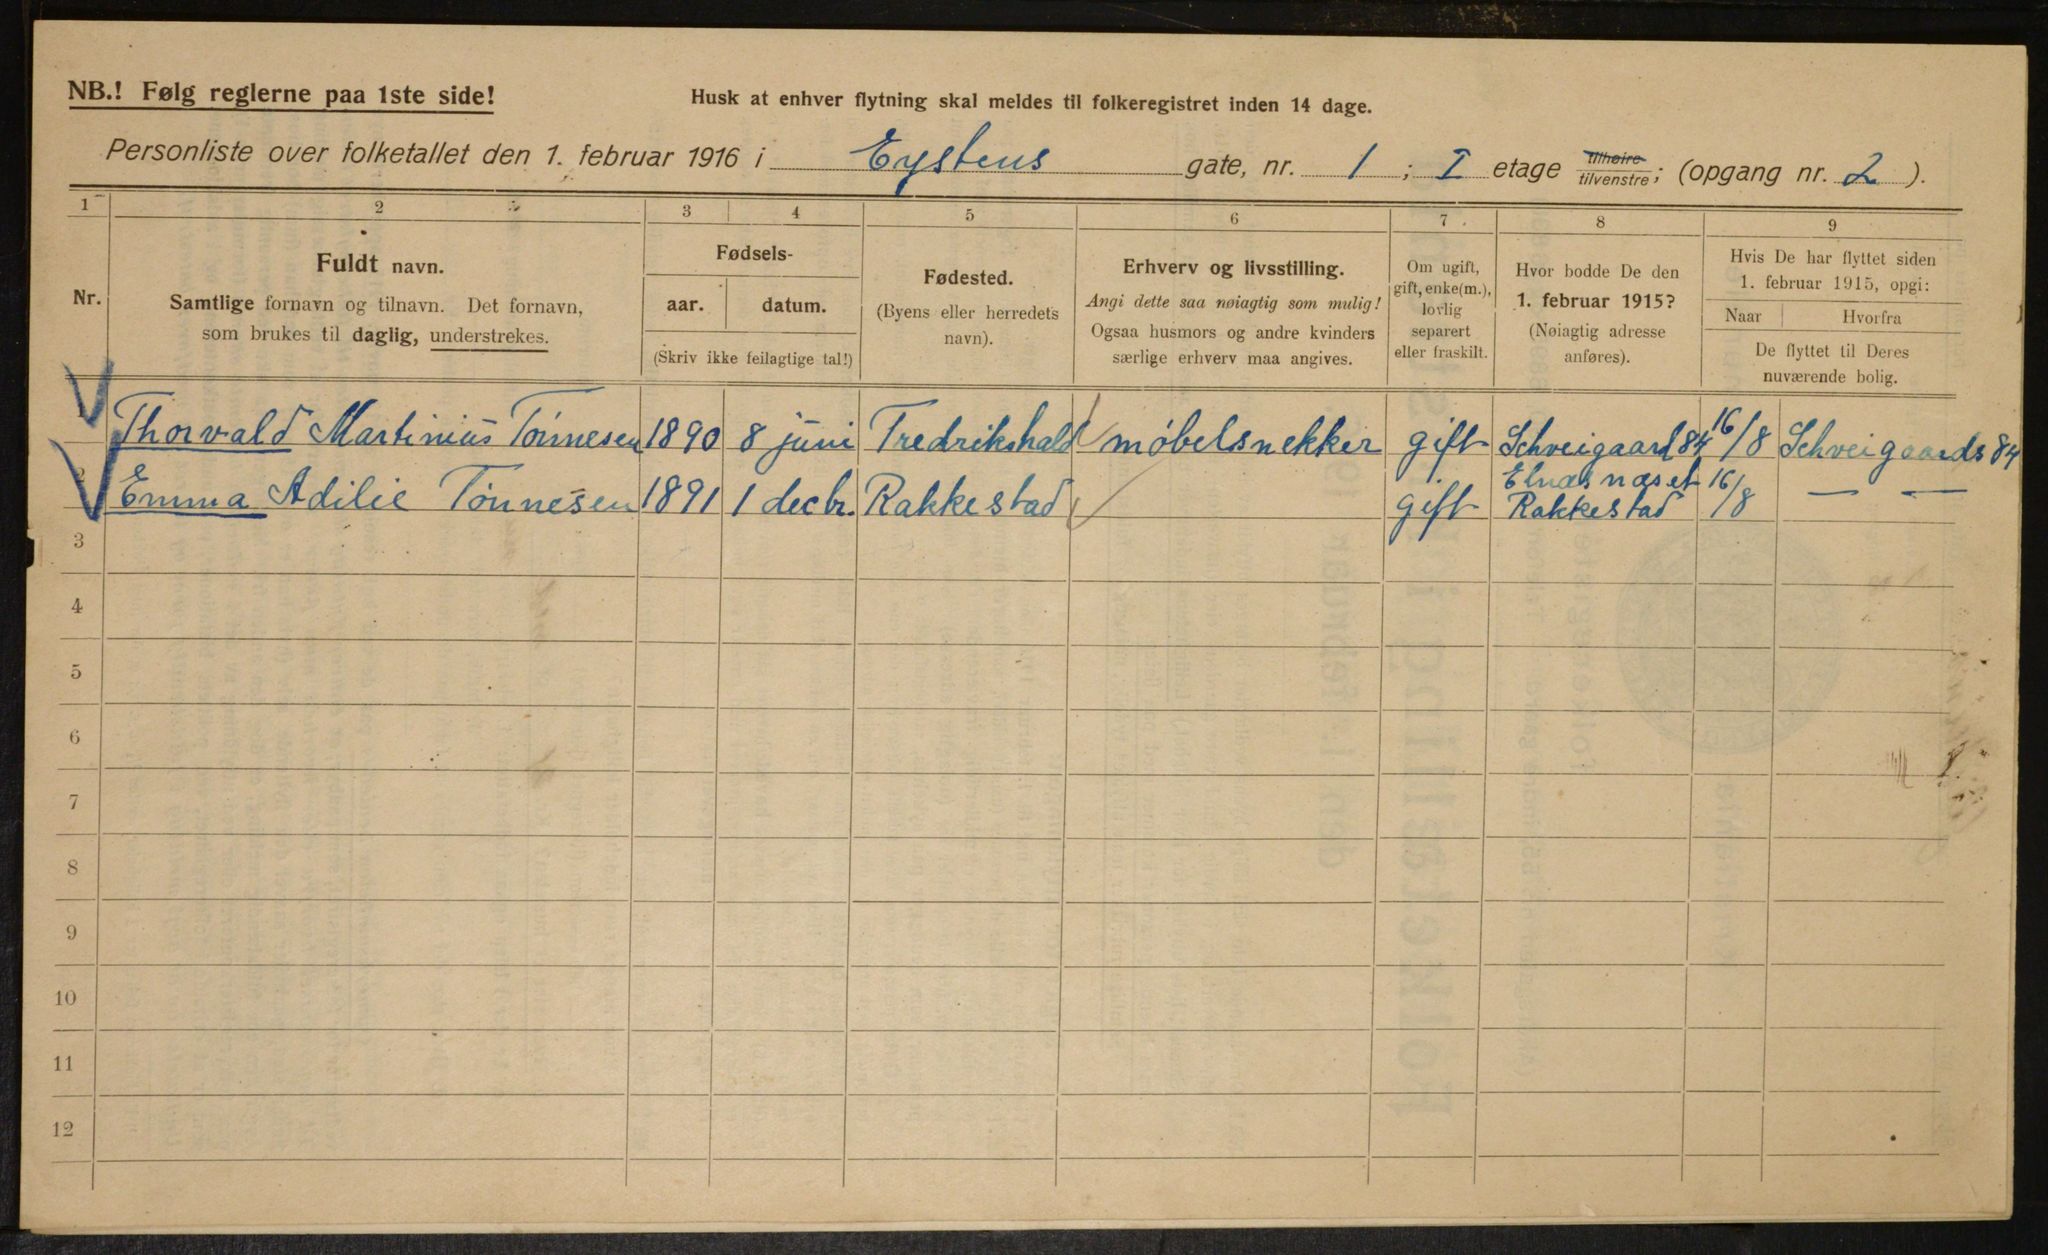 NB.! Følg reglerne paa 1ste side!
Husk at enhver flytning skal meldes til folkeregistret inden 14 dage.
Personliste over folketallet den 1. februar 1916 i Eystens gate, nr. 1 ; I etage tilhøire tilvenstre; (opgang nr. 2 ).
1 2 3 4 5 6 7 8 9
Nr.
Fuldt navn.
Samtlige fornavn og tilnavn. Det fornavn,
som brukes til daglig, understrekes.
Fødsels-
aar. datum.
(Skriv ikke feilagtige tal!)
Fødested.
(Byens eller herredets
navn).
Erhverv og livsstilling.
Angi dette saa nøiagtig som mulig!
Ogsaa husmors og andre kvinders
særlige erhverv maa angives.
Om ugift,
gift, enke(m.),
lovlig
separert
eller fraskilt.
Hvor bodde De den
1. februar 1915?
(Nøiagtig adresse
anføres).
Hvis De har flyttet siden
1. februar 1915, opgi:
Naar Hvorfra
De flyttet til Deres
nuværende bolig.
1 Thorvald Martinius Tönnesen 1890 8 juni Fredrikshald møbelsnekker gift Schveigaard 84 16/8 Schveigaards 84
2 Emma Adilie Tönnesen 1891 1 decbr. Rakkestad gift Rakkestad 16/8 — —
3
4
5
6
7
8
9
10
11
12